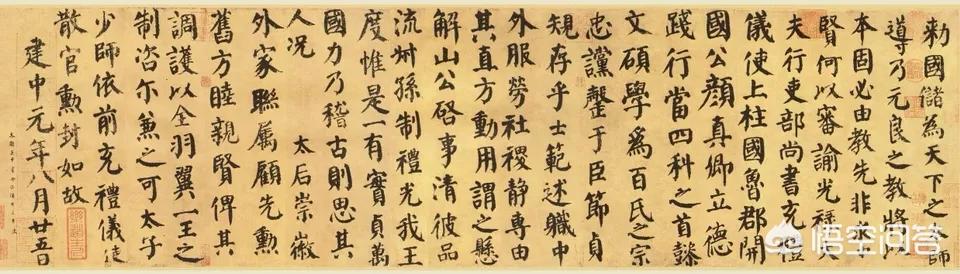 勑國儲為天下之師
導乃元良之教將
本固必由教先非求
賢何以審諭光
夫行吏部尚書充禮
儀使上柱國魯郡開
國公顏真卿立德
踐行當四科之首懿
文碩學爲百氏之宗
忠讜罄于臣節貞
規存乎士範述軄中
外服勞社稷静專由
其直方動用謂之懸
解山公啓事清彼品
流叔孫制禮光我王
度惟是一有實貞萬
國力乃稽古則思其
人况 太后崇徽
外家聯属顧先勲
舊方睦親賢俾其
調護以全羽翼一王之
制咨尓兼之可太子
少師依前充禮儀使
散官勲封如故
建中元年八月廿五日
悟空问答